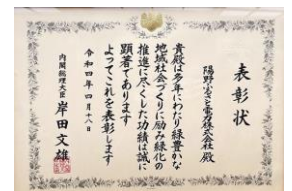 表彰状
陽野ふるさと電力株式会社殿
貴殿は多年にわたり緑豊かな
地域社会づくりに励み緑化の
推進に尽くした功績は誠に
顕著であります
よってこれを表彰します
令和四年四月十八日
内閣総理大臣 岸田文雄